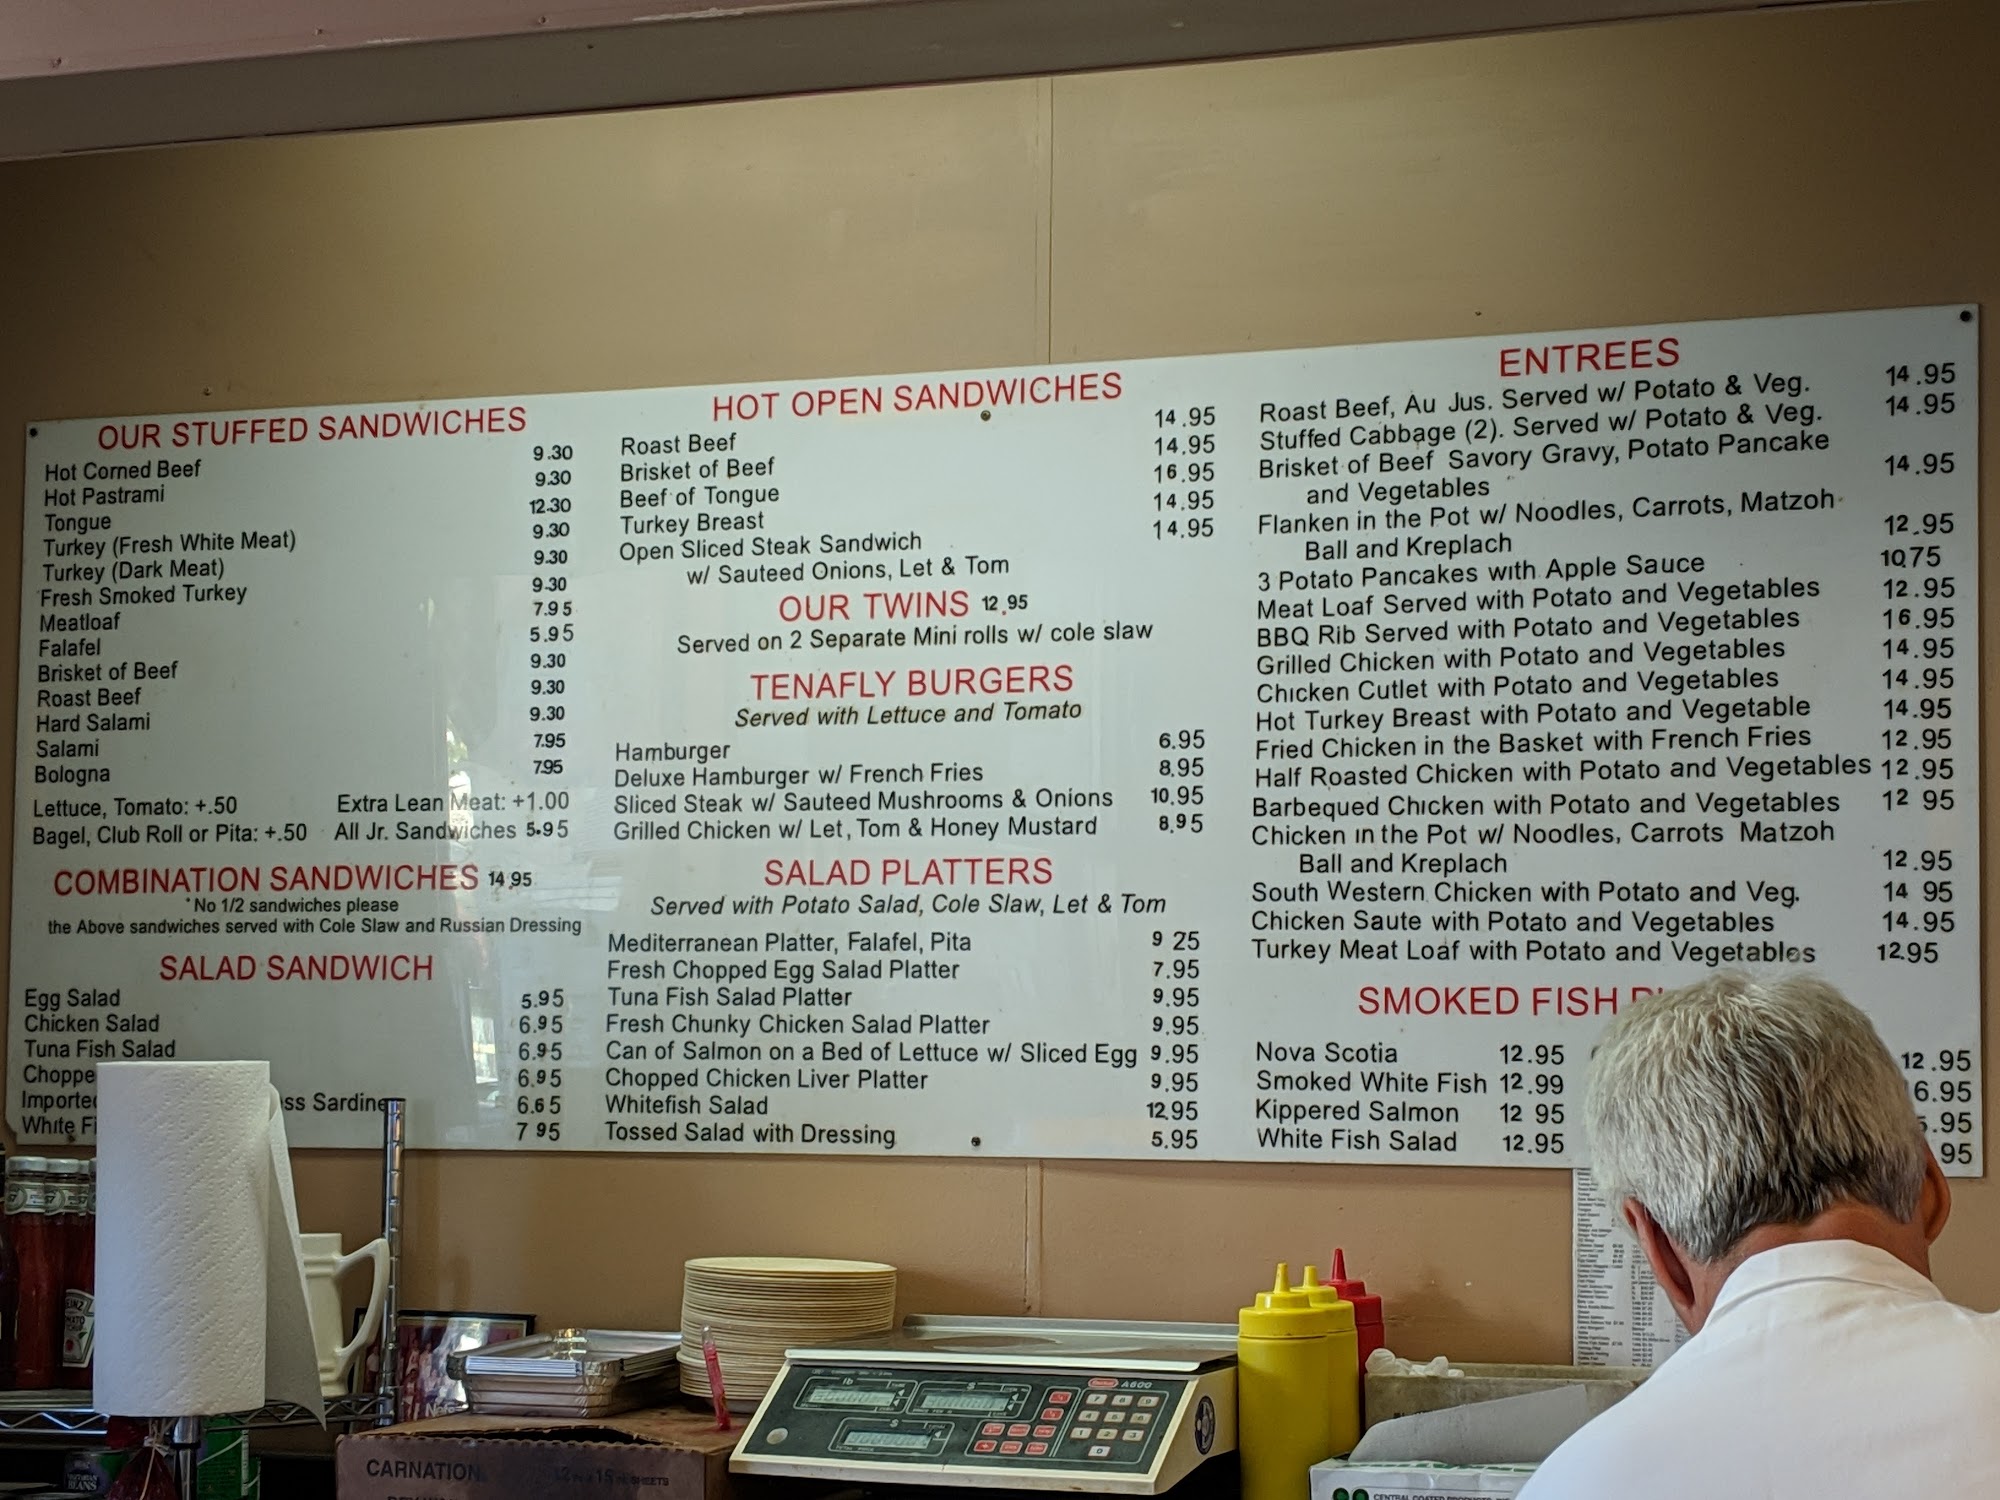 OUR STUFFED SANDWICHES
Hot Corned Beef 9.30
Hot Pastrami 9.30
Tongue 12.30
Turkey (Fresh White Meat) 9.30
Turkey (Dark Meat) 9.30
Fresh Smoked Turkey 9.30
Meatloaf 7.95
Falafel 5.95
Brisket of Beef 9.30
Roast Beef 9.30
Hard Salami 9.30
Salami 7.95
Bologna 7.95
Lettuce, Tomato: +.50 Extra Lean Meat: +1.00
Bagel, Club Roll or Pita: +.50 All Jr. Sandwiches 5.95
COMBINATION SANDWICHES 14.95
*No 1/2 sandwiches please
the Above sandwiches served with Cole Slaw and Russian Dressing
SALAD SANDWICH
Egg Salad 5.95
Chicken Salad 6.95
Tuna Fish Salad 6.95
6.95
6.65
7 95
HOT OPEN SANDWICHES
Roast Beef 14.95
Brisket of Beef 14.95
Beef of Tongue 16.95
Turkey Breast 14.95
Open Sliced Steak Sandwich 14.95
w/ Sauteed Onions, Let & Tom
OUR TWINS 12.95
Served on 2 Separate Mini rolls w/ cole slaw
TENAFLY BURGERS
Served with Lettuce and Tomato
Hamburger 6.95
Deluxe Hamburger w/ French Fries 8.95
Sliced Steak w/ Sauteed Mushrooms & Onions 10.95
Grilled Chicken w/ Let, Tom & Honey Mustard 8.95
SALAD PLATTERS
Served with Potato Salad, Cole Slaw, Let & Tom
Mediterranean Platter, Falafel, Pita 9 25
Fresh Chopped Egg Salad Platter 7.95
Tuna Fish Salad Platter 9.95
Fresh Chunky Chicken Salad Platter 9.95
Can of Salmon on a Bed of Lettuce w/ Sliced Egg 9.95
Chopped Chicken Liver Platter 9.95
Whitefish Salad 12.95
Tossed Salad with Dressing 5.95
ENTREES
Roast Beef, Au Jus. Served w/ Potato & Veg. 14.95
Stuffed Cabbage (2). Served w/ Potato & Veg. 14.95
Brisket of Beef Savory Gravy, Potato Pancake
and Vegetables 14.95
Flanken in the Pot w/ Noodles, Carrots, Matzoh
Ball and Kreplach 12.95
3 Potato Pancakes with Apple Sauce 10.75
Meat Loaf Served with Potato and Vegetables 12.95
BBQ Rib Served with Potato and Vegetables 16.95
Grilled Chicken with Potato and Vegetables 14.95
Chicken Cutlet with Potato and Vegetables 14.95
Hot Turkey Breast with Potato and Vegetable 14.95
Fried Chicken in the Basket with French Fries 12.95
Half Roasted Chicken with Potato and Vegetables 12.95
Barbequed Chicken with Potato and Vegetables 12 95
Chicken in the Pot w/ Noodles, Carrots Matzoh
Ball and Kreplach 12.95
South Western Chicken with Potato and Veg. 14 95
Chicken Saute with Potato and Vegetables 14.95
Turkey Meat Loaf with Potato and Vegetables 12.95
SMOKED FISH
Nova Scotia 12.95 12.95
Smoked White Fish 12.99 6.95
Kippered Salmon 12 95 .95
White Fish Salad 12.95 95
HEINZ
CARNATION
A600